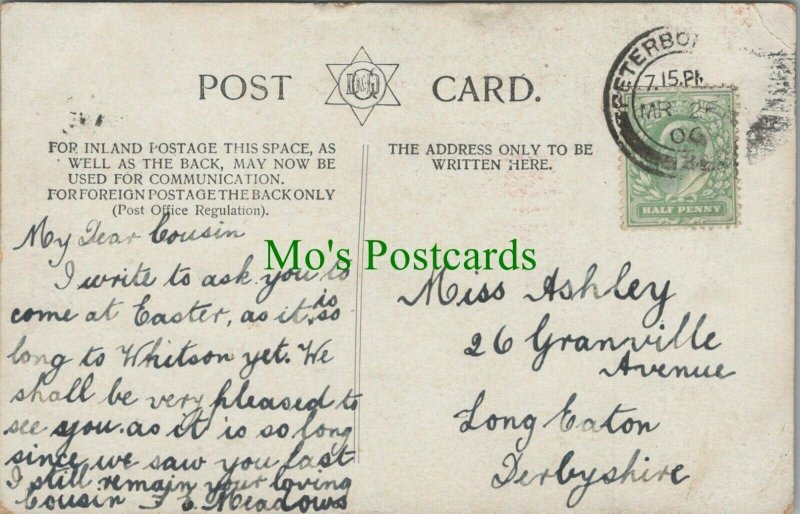 POST CARD.
FOR INLAND POSTAGE THIS SPACE, AS
WELL AS THE BACK, MAY NOW BE
USED FOR COMMUNICATION.
FOR FOREIGN POSTAGE THE BACK ONLY
(Post Office Regulation).
THE ADDRESS ONLY TO BE
WRITTEN HERE.
PETERBO
7.15.PM
MR 2
06
HALF PENNY
Mo's Postcards
My Dear Cousin
I write to ask you to
come at Easter, as it is so
long to Whitson yet. We
shall be very pleased to
see you. as it is so long
since we saw you last
I still remain your loving
Cousin F E Meadows
Miss Ashley
26 Granville
Avenue
Long Eaton
Derbyshire